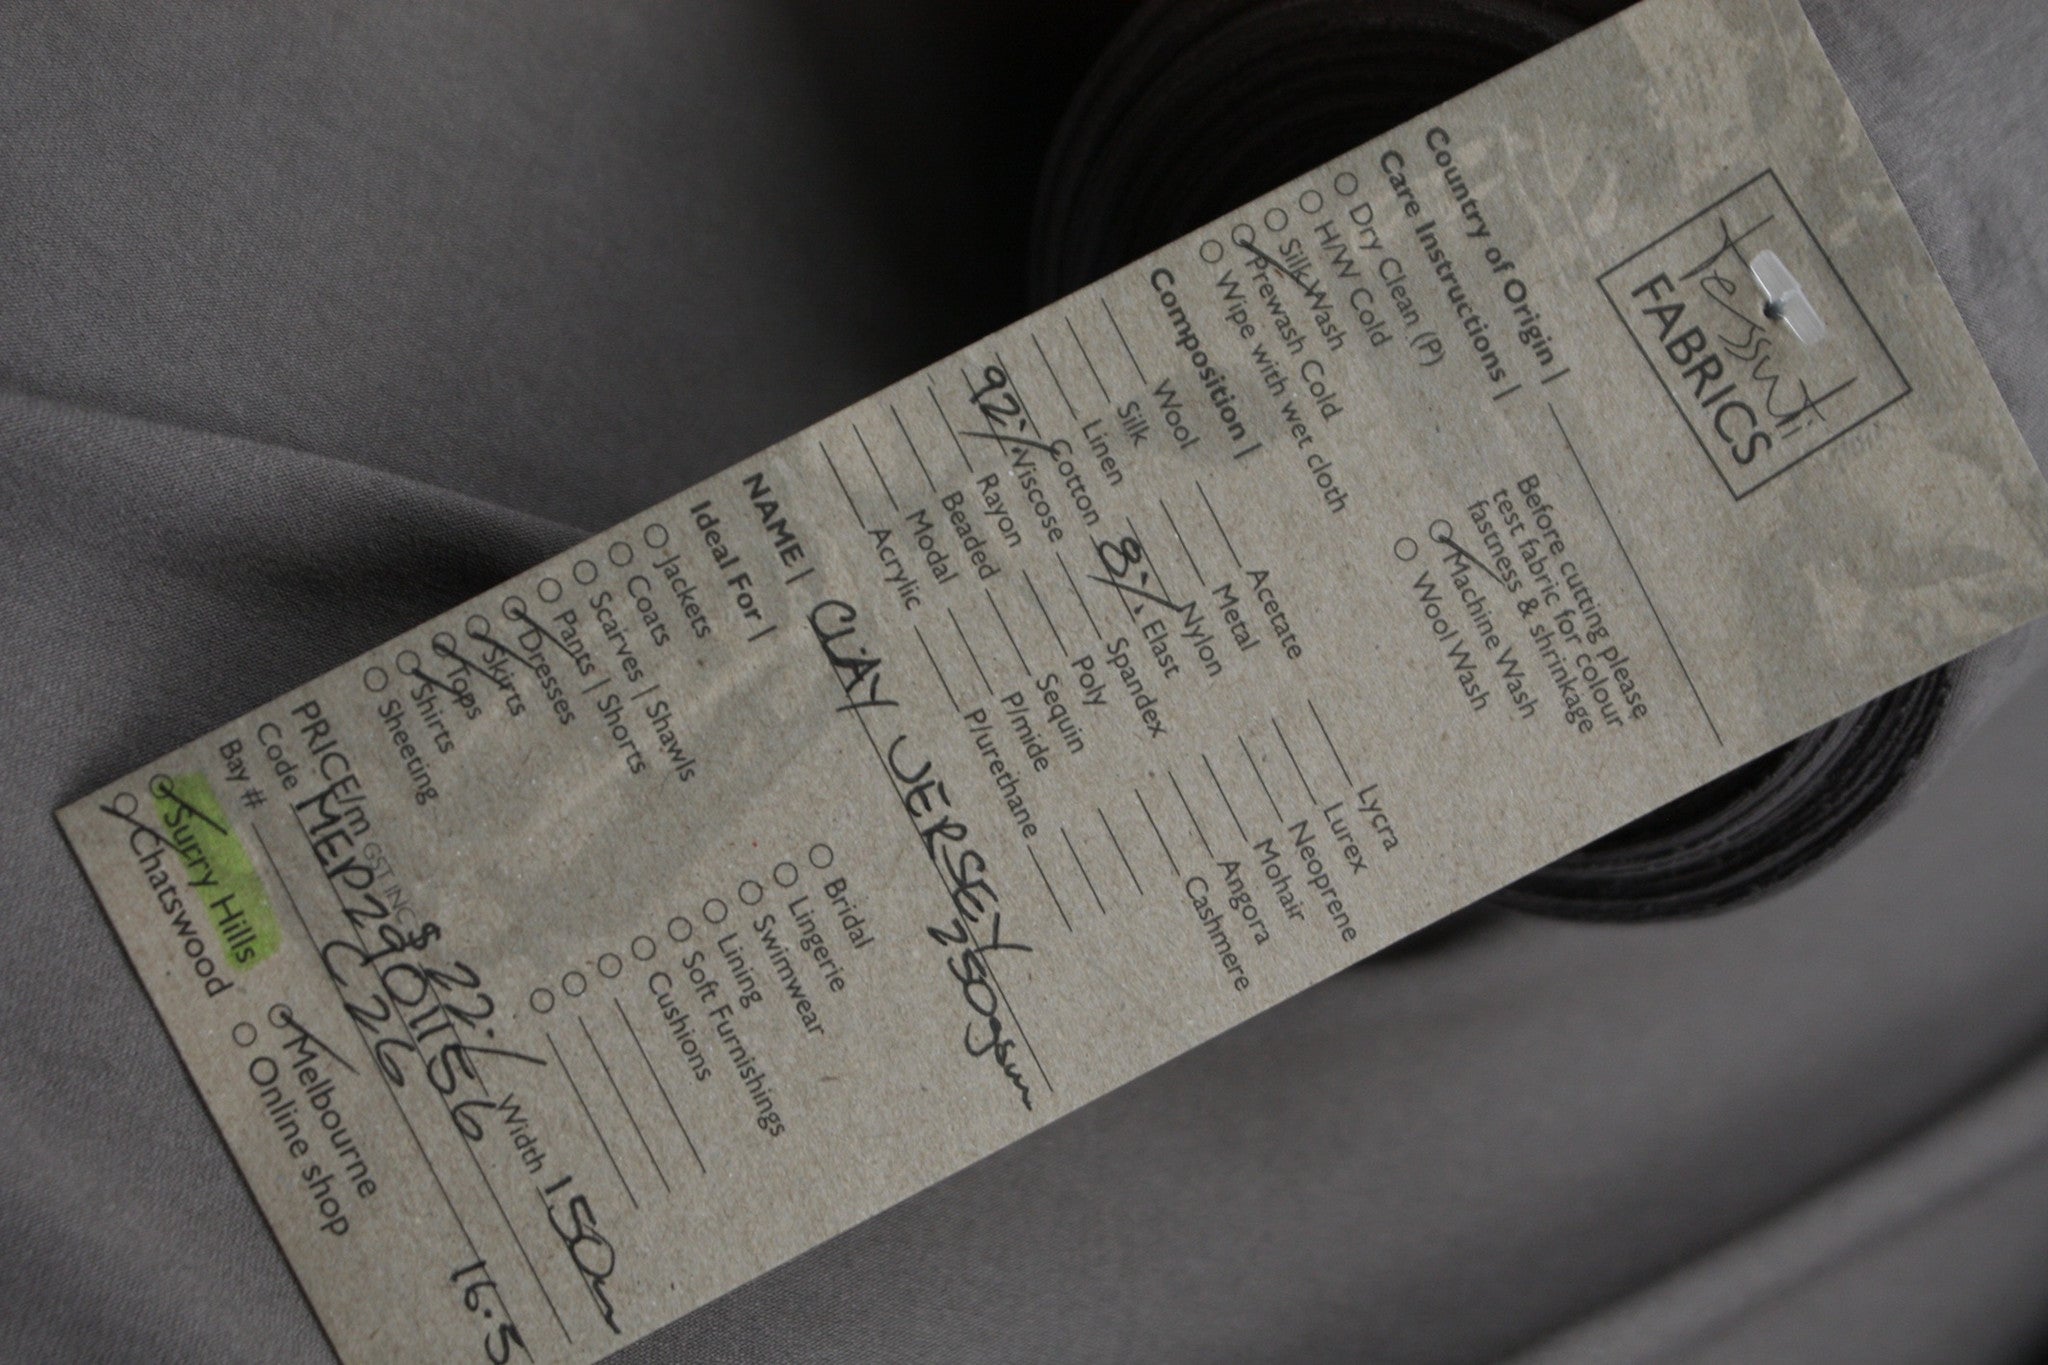 Tessuti
FABRICS
Country of Origin |
Care Instructions |
Dry Clean (P)
H/W Cold
Silk Wash
Prewash Cold
Wipe with wet cloth
Before cutting please
test fabric for colour
fastness & shrinkage
Machine Wash
Wool Wash
Composition |
Wool Acetate Lycra
Silk Metal Lurex
Linen Nylon Neoprene
Cotton 8% Elast Mohair
92% Viscose Spandex Angora
Rayon Poly Cashmere
Beaded Sequin
Modal P/mide
Acrylic P/urethane
NAME | CLAY JERSEY
250gsm
Ideal For |
Jackets Bridal
Coats Lingerie
Scarves | Shawls Swimwear
Pants | Shorts Lining
Dresses Soft Furnishings
Skirts Cushions
Tops
Shirts
Sheeting
PRICE/m GST INC $ 22./ Width 1.50m
Code MEP29011556
Bay # C26 16.5
Surry Hills Melbourne
Chatswood Online shop